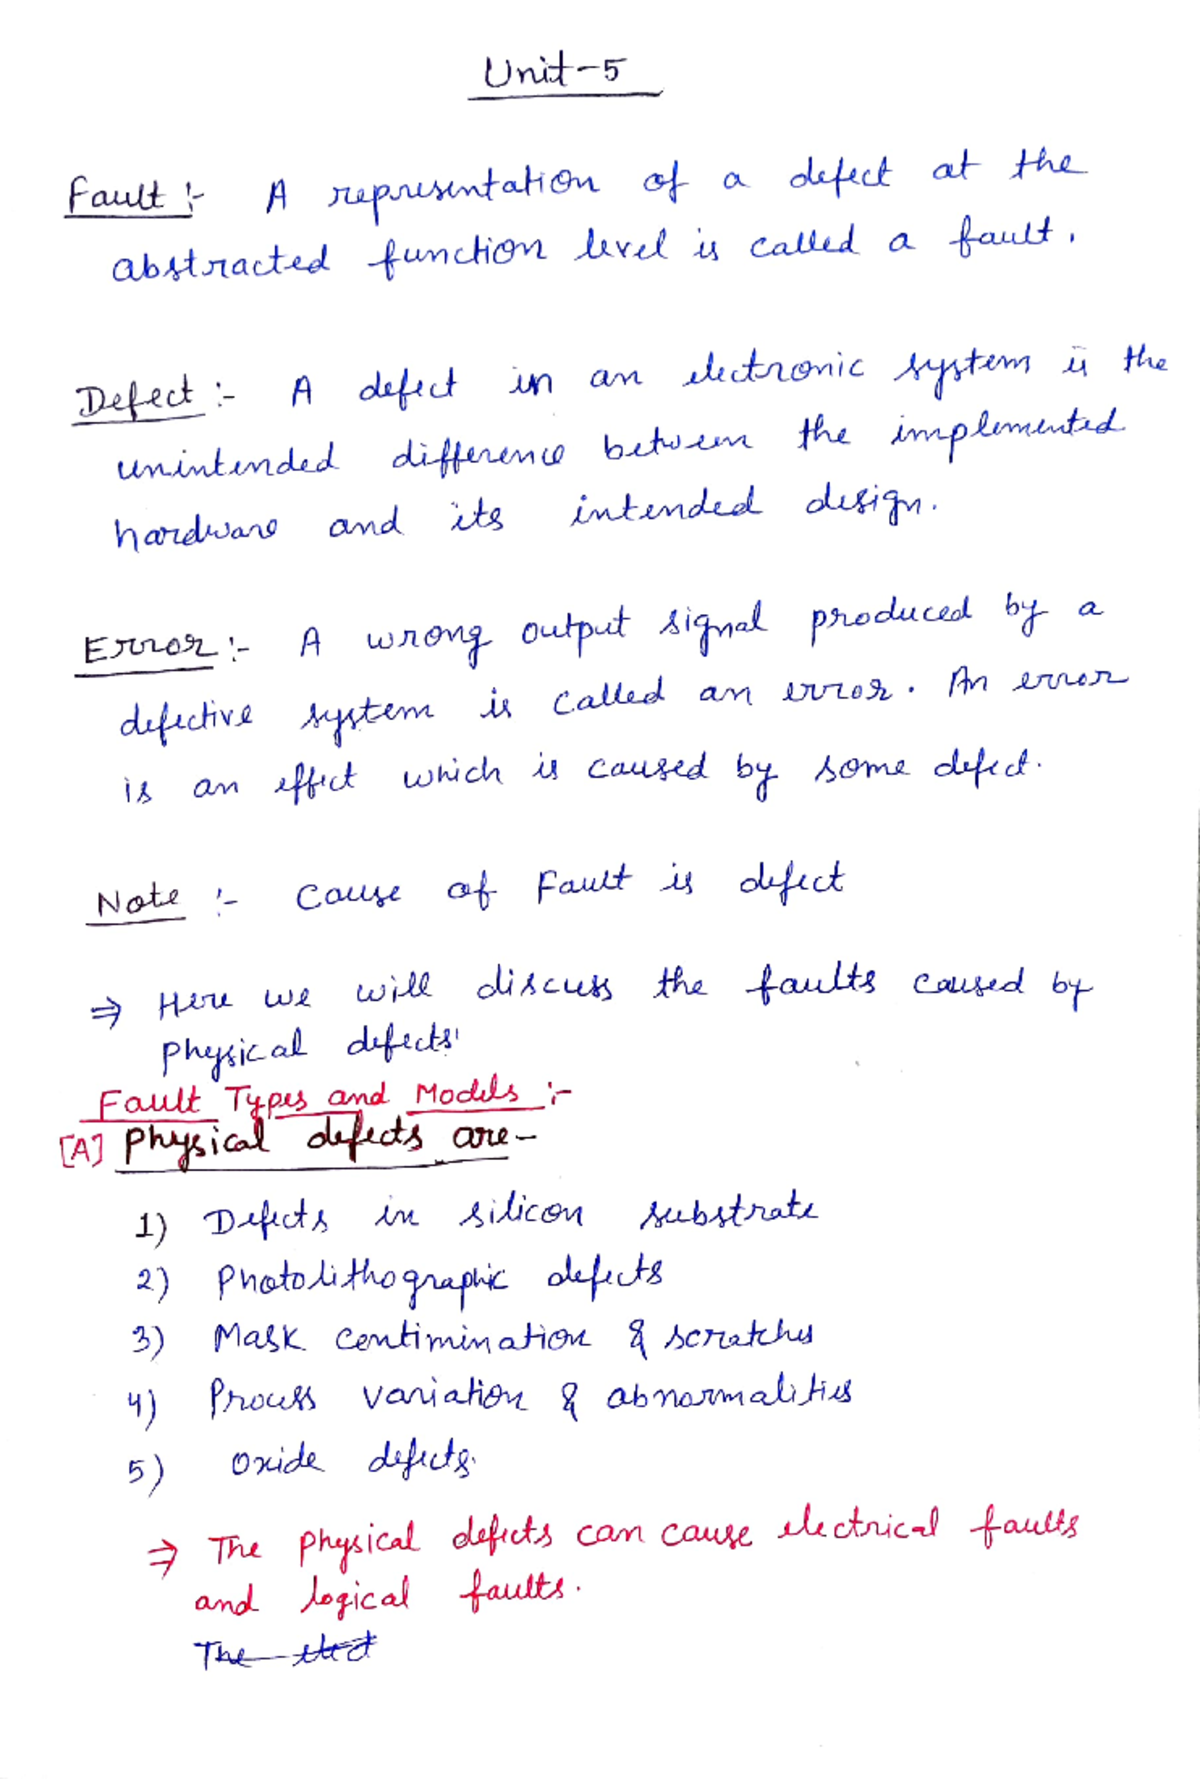 Unit-5
Fault :- A representation of a defect at the
abstracted function level is called a fault.
Defect :- A defect in an electronic system is the
unintended difference between the implemented
hardware and its intended design.
Error :- A wrong output signal produced by a
defective system is called an error. An error
is an effect which is caused by some defect.
Note :- Cause of Fault is defect
⇒ Here we will discuss the faults caused by
physical defects.
Fault Types and Models :-
[A] Physical defects are-
1) Defects in silicon substrate
2) Photolithographic defects
3) Mask centimination & scratches
4) Process variation & abnormalities
5) Oxide defects.
⇒ The physical defects can cause electrical faults
and logical faults.
The elect